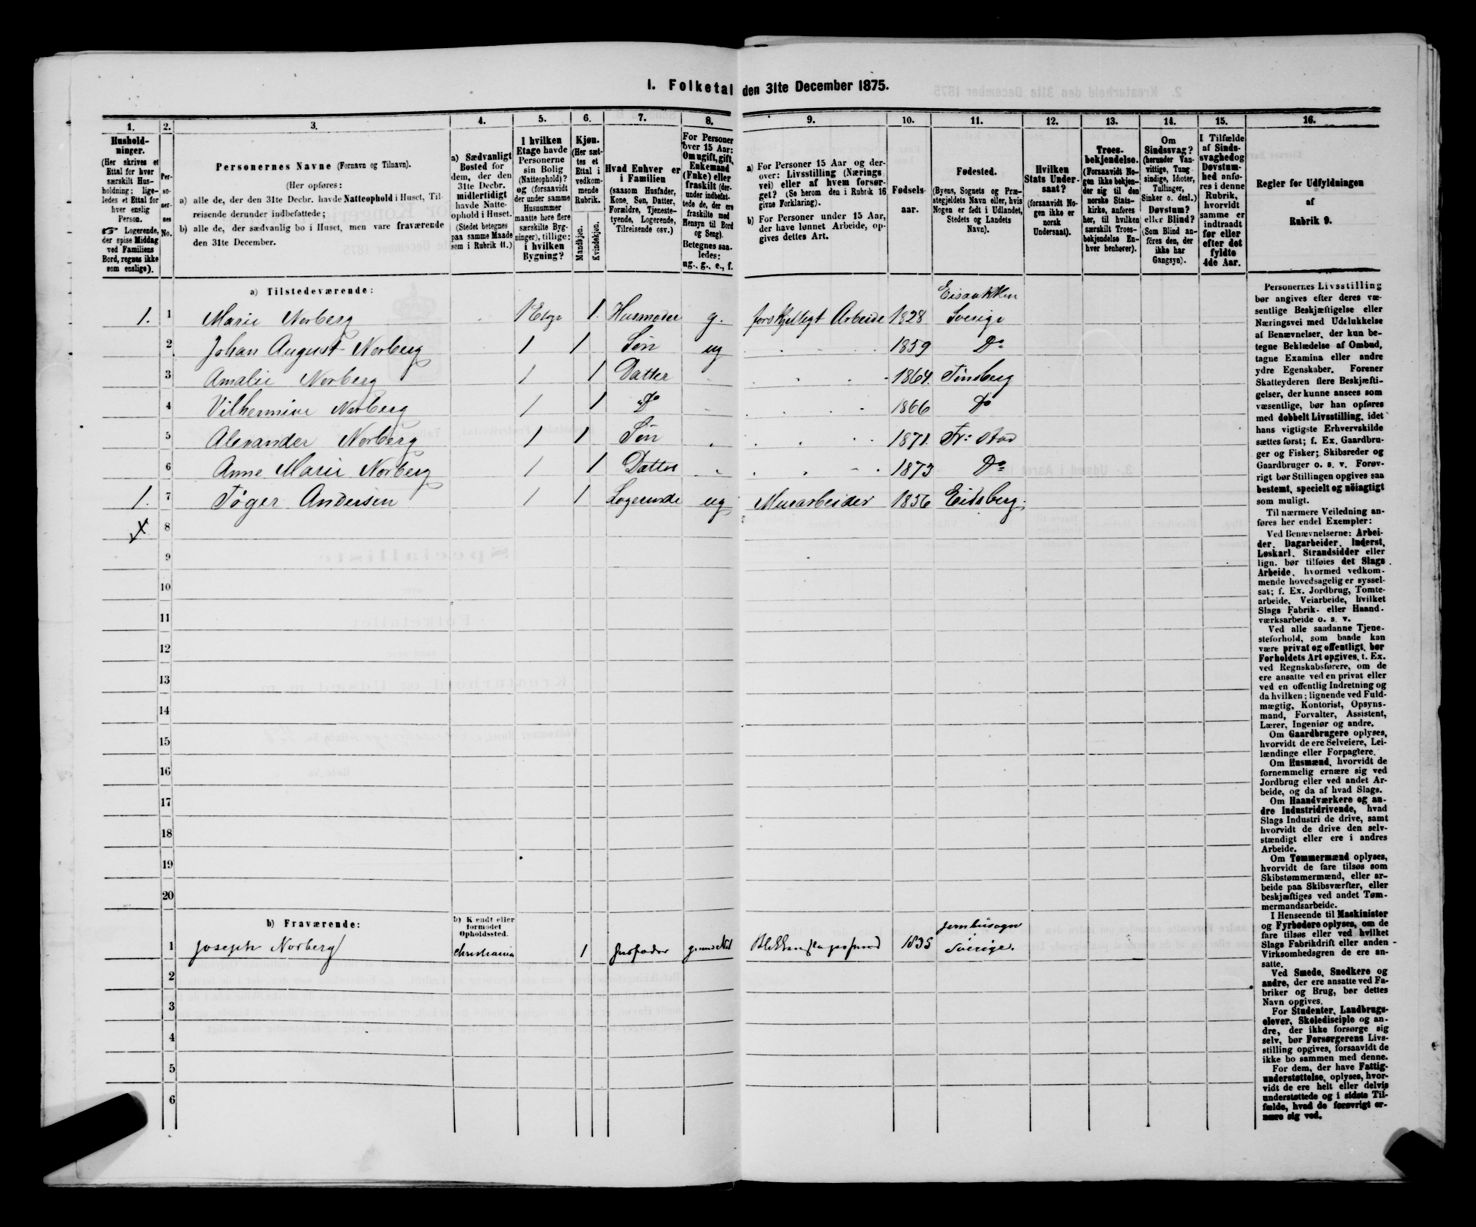 I. Folketal den 31te December 1875.
1. 2. 3. 4. 5. 6. 7. 8. 9. 10. 11. 12. 13. 14. 15. 16.
Hushold-
ninger.
(Her skrives et
Ettal for hver
særskilt Hus-
holdning; lige-
ledes et Ettal for
hver enslig
Person.
☞ Logerende,
der spise Middag
ved Familiens
Bord, regnes ikke
som enslige).
Per-
so-
ner-
nes
No.
Personernes Navne (Fornavn og Tilnavn).
(Her opføres:
a) alle de, der den 31te Decbr. havde Natteophold i Huset, Til-
reisende derunder indbefattede;
b) alle de, der sædvanlig bo i Huset, men vare fraværende
den 31te December.
a) Sædvanligt
Bosted for
dem, der den
31te Decbr.
midlertidigt
havde Natte-
ophold i Huset.
(Stedet betegnes
paa samme Maade
som i Rubrik 11.)
I hvilken
Etage havde
Personerne
sin Bolig
(Natteophold)?
og (forsaavidt
der under samme
Husnummer
maatte høre flere
særskilte Byg-
ninger), tillige:
i hvilken
Bygning?
Kjøn.
(Her sæt-
tes et
Ettal i
vedkom-
mende
Rubrik.
Mandkjøn.
Kvindekjøn.
Hvad Enhver er
i Familien
(saasom Husfader,
Kone, Søn, Datter,
Forældre, Tjeneste-
tyende, Logerende,
Tilreisende osv.)
For Personer
over 15 Aar:
Om ugift, gift,
Enkemand
(Enke) eller
fraskilt (der-
under indbefat-
tede de, der ere
fraskilte med
Hensyn til Bord
og Seng).
Betegnes saa-
ledes:
ug., g., e., f.
a) For Personer 15 Aar og der-
over: Livsstilling (Nærings-
vei) eller af hvem forsør-
get? (Se herom den i Rubrik 16
givne Forklaring).
b) For Personer under 15 Aar,
der have lønnet Arbeide, op-
gives dettes Art.
Fødsels-
aar.
Fødested.
(Byens, Sognets og Præ-
stegjeldets Navn eller, hvis
Nogen er født i Udlandet,
Stedets og Landets
Navn).
Hvilken
Stats Under-
saat?
(forsaavidt No-
gen ikke er
norsk
Undersaat).
Troes-
bekjendelse.
(Forsaavidt No-
gen ikke bekjen-
der sig til den
norske Stats-
kirke, anføres
her, til hvilken
særskilt Troes-
bekjendelse En-
hver henhører).
Om
Sindssvag?
(herunder Van-
vittige, Tung-
sindige, Idioter,
Tullinger,
Sinker o. desl.)
Døvstum?
eller Blind?
(Som Blind an-
føres den, der
ikke har
Gangsyn).
I Tilfælde
af Sinds-
svaghed og
Døvstum-
hed anfø-
res i denne
Rubrik,
hvorvidt
samme er
indtraadt
før eller
efter det
fyldte
4de Aar.
Regler for Udfyldningen
af
Rubrik 9.
a) Tilstedeværende:
1. 1 Marie Norberg 1 Etage 1 Husmoder g. forskjelligt Arbeide 1828 Sverige
2 Johan August Norberg 1 1 Søn ug 1859 Do
3 Amalie Norberg 1 1 Datter 1864 Tønsberg
4 Vilhermine Norberg 1 1 Do 1866 Do
5 Alexander Norberg 1 1 Søn 1871 Fr: stad
6 Anne Marie Norberg 1 1 Datter 1873 Do
1. 7 Tøger Andersen 1 1 Logerende ug Murarbeider 1856 Eidsberg.
8
9
10
11
12
13
14
15
16
17
18
19
20
b) Fraværende:
b) Kjendt eller
formodet
Opholdssted.
1 Joseph Norberg Christiania 1 Husfader 1835 Sverige.
2
3
4
5
6
Personernes Livsstilling
bør angives efter deres væ-
sentlige Beskjæftigelse eller
Næringsvei med Udelukkelse
af Benævnelser, der kun be-
tegne Beklædelse af Ombud,
tagne Examina eller andre
ydre Egenskaber. Forener
Skatteyderen flere Beskjæfti-
gelser, der kunne ansees som
væsentlige, bør han opføres
med dobbelt Livsstilling, idet
hans vigtigste Erhvervskilde
sættes først; f. Ex. Gaardbru-
ger og Fisker; Skibsreder og
Gaardbruger o. s. v. Forøv-
rigt bør Stillingen opgives saa
bestemt, specielt og nøiagtigt
som muligt.
Til nærmere Veiledning an-
føres her endel Exempler:
Ved Benævnelserne: Arbei-
der, Dagarbeider, Inderst,
Løskarl, Strandsidder eller
lign. bør tilføies det Slags
Arbeide, hvormed vedkom-
mende hovedsagelig er syssel-
sat; f. Ex. Jordbrug, Tomte-
arbeide, Veiarbeide, hvilket
Slags Fabrik- eller Haand-
værksarbeide o. s. v.
Ved alle saadanne Tjene-
steforhold, som baade kan
være privat og offentligt, bør
Forholdets Art opgives, t. Ex.
ved Regnskabsførere, om de
ere ansatte ved en privat eller
ved en offentlig Indretning og
da hvilken; lignende ved Fuld-
mægtig, Kontorist, Opsyns-
mand, Forvalter, Assistent,
Lærer, Ingeniør og andre.
Om Gaardbrugere oplyses,
hvorvidt de ere Selveiere, Lei-
lændinge eller Forpagtere.
Om Husmænd, hvorvidt de
fornemmelig ernære sig ved
Jordbrug eller ved andet Ar-
beide, og da af hvad Slags.
Om Haandværkere og an-
dre Industridrivende, hvad
Slags Industri de drive, samt
hvorvidt de drive den selv-
stændigt eller ere i andres
Arbeide.
Om Tømmermænd oplyses,
hvorvidt de fare tilsøs som
Skibstømmermænd, eller ar-
beide paa Skibsværfter, eller
beskjæftiges ved andet Tøm-
mermandsarbeide.
I Henseende til Maskinister
og Fyrbødere oplyses, om de
fare tilsøs eller ved hvilket
Slags Fabrikdrift eller anden
Virksomhedsgren de ere an-
satte.
Ved Smede, Snedkere og
andre, der ere ansatte ved Fa-
briker og Brug, bør dettes
Navn opgives.
For Studenter, Landbrugs-
elever, Skoledisciple og an-
dre, der ikke forsørge sig
selv, bør Forsørgerens Livs-
stilling opgives, forsaavidt de
ikke bo sammen med denne.
For dem, der have Fattig-
understøttelse, oplyses, hvor-
vidt de ere helt eller delvis
understøttede og i sidste Til-
fælde, hvad de forøvrigt er-
nære sig ved.